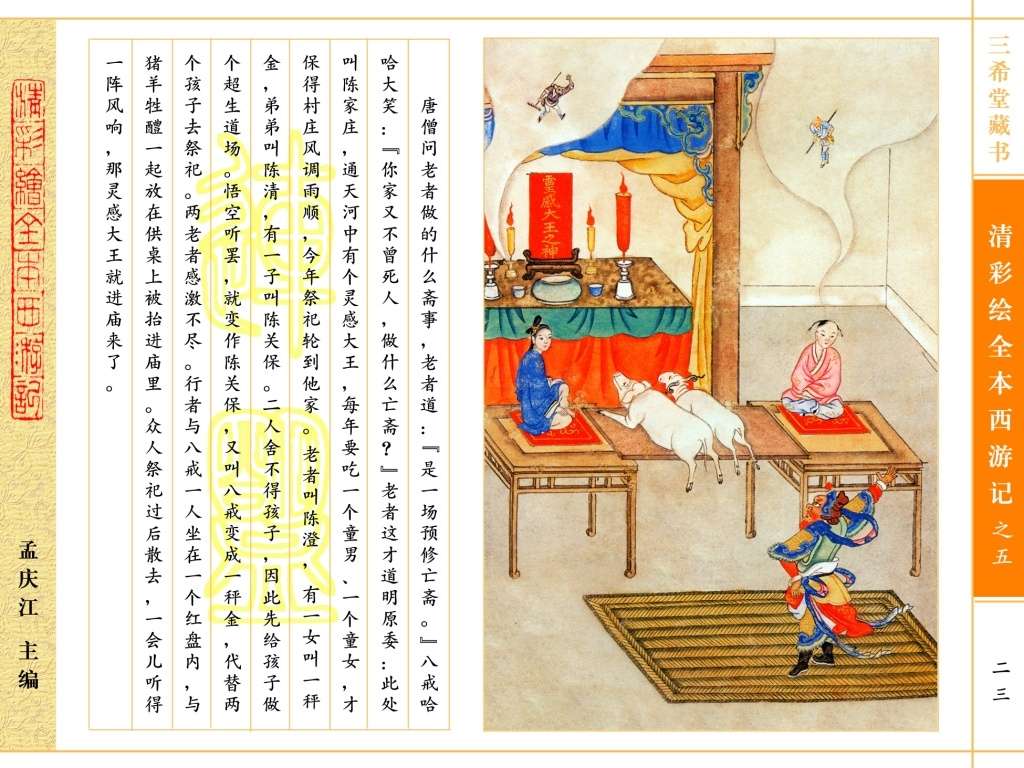 三希堂藏书
清彩绘全本西游记之五
二三
靈感大王之神
唐僧问老者做的什么斋事，老者道：『是一场预修亡斋。』八戒哈
哈大笑：『你家又不曾死人，做什么亡斋？』老者这才道明原委：此处
叫陈家庄，通天河中有个灵感大王，每年要吃一个童男、一个童女，才
保得村庄风调雨顺，今年祭祀轮到他家。老者叫陈澄，有一女叫一秤
金，弟弟叫陈清，有一子叫陈关保。二人舍不得孩子，因此先给孩子做
个超生道场。悟空听罢，就变作陈关保，又叫八戒变成一秤金，代替两
个孩子去祭祀。两老者感激不尽。行者与八戒一人坐在一个红盘内，与
猪羊牲醴一起放在供桌上被抬进庙里。众人祭祀过后散去，一会儿听得
一阵风响，那灵感大王就进庙来了。
清彩繪全本西游記
孟庆江 主编